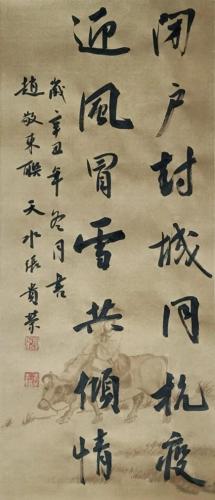 闭户封城同抗疫
迎风冒雪共倾情
岁辛丑年冬月书
赵敬东联 天水张贵荣